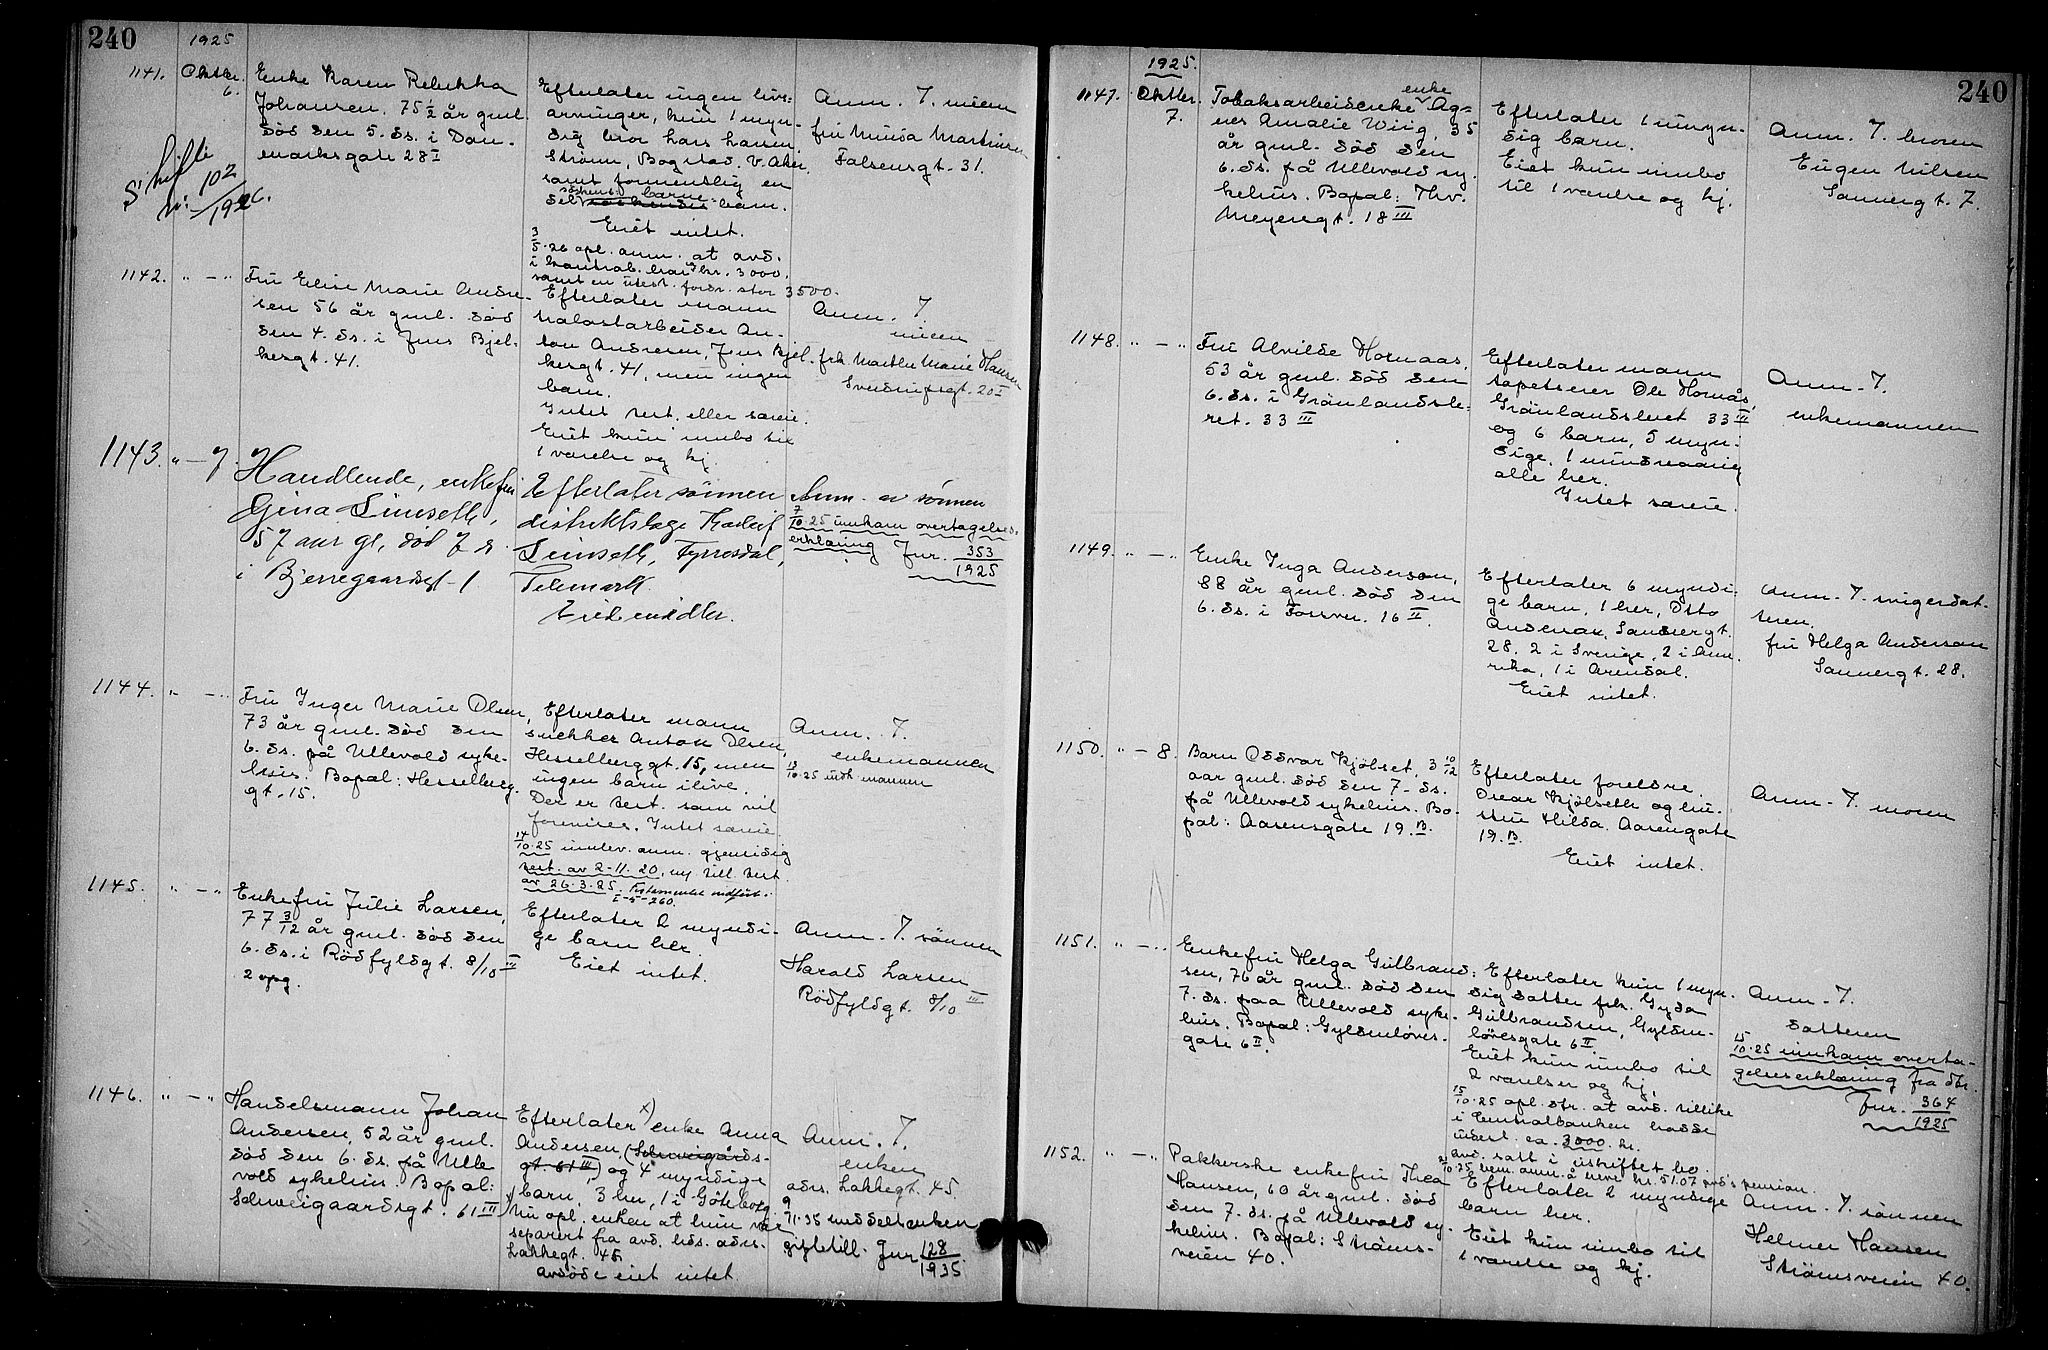 240
1925
1141. Oktbr. 6.
Enke Karen Rebekka
Johansen, 75 1/2 år gml.
död den 5. ds. i Dan-
marksgate 28 I
Skifte
nr. 102/1926.
Efterlater ingen livs-
arvinger, kun 1 myn-
dig bror Lars Larsen
Strøm, Bogstad, V. Aker
samt formentlig en
del söskendebarn.
Eiet intet.
3/5.26 opl. anm. at avd.
i kontrab. hr. 3000.
samt en utest. fordr. stor 3500.
Anm. T. niecen
fru Minda Martinsen
Falsensgt. 31.
1142. " — "
Fru Elise Marie Andre-
sen 56 år gml. död
den 4. ds. i Jens Bjel-
kesgt. 41.
Efterlater mann
malastarbeider An-
ton Andresen, Jens Bjel-
kesgt. 41, men ingen
barn.
Intet test. eller særeie.
Eiet kun innbo til
1 værelse og kj.
Anm. T.
niecen
frk Marthe Marie Hansen
Sverdrupsgt. 20 I
1143. " — 7.
Handlende, enkefru
Gina Seimseth,
57 aar gl, död 7 ds
i Bjerregaardsgt 1
Efterlater sönnen
distriktslæge
Seimseth, Fyresdal,
Telemark.
Eiet midler.
Anm. av sönnen
7/10.25 innkom overtagelses-
erklæring Jnr. 353/1925
1144. " — "
Fru Inger Marie Olsen,
73 år gml. död den
6. ds. på Ullevold syke-
hus. Bopal: Hesselberg
gt. 15.
Efterlater mann
snekker Anton Olsen,
Hesselberggt. 15, men
ingen barn ilive.
Der er test. som vil
forevises. Intet særeie.
14/10.25 innlev. anm. gjensidig
test. av 2-11.20, og till. test.
av 26.3.25. Testamentet indført i
I-5-260.
Anm. T.
enkemannen
13/10.25 indk. mannen
1145. " — "
Enkefru Julie Larsen,
77 3/12 år gml. död den
6. ds. i Rödfyldgt. 8/10 III
2 opg.
Efterlater 2 myndi-
ge barn her.
Eiet intet.
Anm. T. sönnen
Harald Larsen
Rödfyldgt. 8/10 III
1146. " — "
Handelsmann Johan
Andersen, 52 år gml.
död den 6. ds. på Ulle
vold sykehus. Bopal:
Schweigaardsgt. 61 III
Efterlater x) enke Anna
Andersen, (Schweigårds-
gt. 61 III,) og 4 myndige
barn, 3 her, 1 i Göteborg.
x) Nu opl. enken at hun var
separert fra avd. hds. adrs.
Lakkegt. 45
avdöde eiet intet.
Anm. T.
enken
adrs. Lakkegt. 45.
9/11.35 meddelt enken
giftetill. Jnr 128/1935
240
1925.
1147. Oktbr. 7.
Tobaksarbeiderske enke Ag-
nes Amalie Wiig, 35
år gml. död den
6. ds. på Ullevold sy-
kehus. Bopal: Thv.
Meyersgt. 18 III
Efterlater 1 umyn-
dig barn.
Eiet kun innbo
til 1 værelse og kj.
Anm. T. broren
Eugen Nilsen
Sannergt. 7.
1148. " — "
Fru Alvilde Hornaas,
53 år gml. död den
6. ds. i Grönlandsle-
ret. 33 III
Efterlater mann
tapetserer Ole Hornås,
Grönlandsleret 33 III
og 6 barn, 5 myn-
dige, 1 mindreaarig
alle her.
Intet særeie.
Anm. T.
enkemannen
1149. " — "
Enke Inga Anderson,
88 år gml. död den
6. ds. i Fossvn. 16 II.
Efterlater 6 myndi-
ge barn, 1 her, Otto
Anderson, Sannergt.
28. 2 i Sverige, 2 i Ame-
rika, 1 i Arendal.
Eiet intet.
Anm. T. svigerdat-
teren.
fru Helga Anderson
Sannergt. 28.
1150. " — 8.
Barn Oddvar Kjölset, 3 10/12
aar gml. död den 7. ds.
på Ullevold sykehus. Bo-
pal: Aasensgate 19. B.
Efterlater foreldre.
Oscar Kjölseth og hu-
stru Hilda. Aasengate
19. B.
Eiet intet.
Anm. T. moren
1151. " — "
Enkefru Helga Gulbrand-
sen, 76 år gml. död den
7. ds. paa Ullevold syke-
hus. Bopal: Gyldenløves-
gate 6 II.
Efterlater kun 1 myn-
dig datter frk. Gyda
Gulbrandsen, Gylden-
lövesgate 6 II.
Eiet kun innbo til
2 værelser og kj,
15/10.25 opl. dtr. at avd. tillike
i Centralbanken hadde
indest. ca. 3000. kr.
avd. satt i uskiftet bo.
Anm. T.
datteren
15/10.25 innkom overta-
gelseserklæring fra dtr.
Jnr. 364/1925
1152. " — "
Pakkerske enkefru Thea
Hansen, 60 år gml. död
den 7. ds. på Ullevold sy-
kehus. Bopal: Ströms-
veien 40.
Efterlater 2 myndige
barn her.
Eiet kun innbo til
1 værelse og kj.
Anm. T. sönnen
Helmer Hansen
Strömsveien 40.